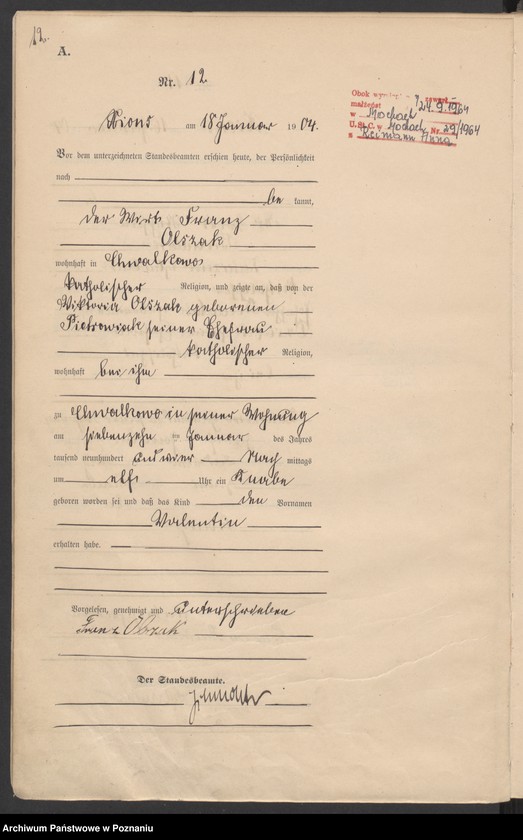 12.
A.
Nr. 12.
Xions am 18 Januar 1904.
Vor dem unterzeichneten Standesbeamten erschien heute, der Persönlichkeit
nach
be kannt,
der Wirt Franz
Olszak
wohnhaft in Chwalkowo
katholischer Religion, und zeigte an, daß von der
Wiktoria Olszak geborenen
Pietrowiak seiner Ehefrau
katholischer Religion,
wohnhaft bei ihm
zu Chwalkowo in seiner Wohnung
am siebenzehn ten Januar des Jahres
tausend neunhundert und vier Nach mittags
um elf Uhr ein Knabe
geboren worden sei und daß das Kind den Vornamen
Valentin
erhalten habe.
Vorgelesen, genehmigt und unterschrieben
Franz Olszak
Der Standesbeamte.
Obok
małżeńst 24.9.1964
w Mochach
U.S.C. w Mochach Nr. 29/1964
z Reimann Anną
Archiwum Państwowe w Poznaniu